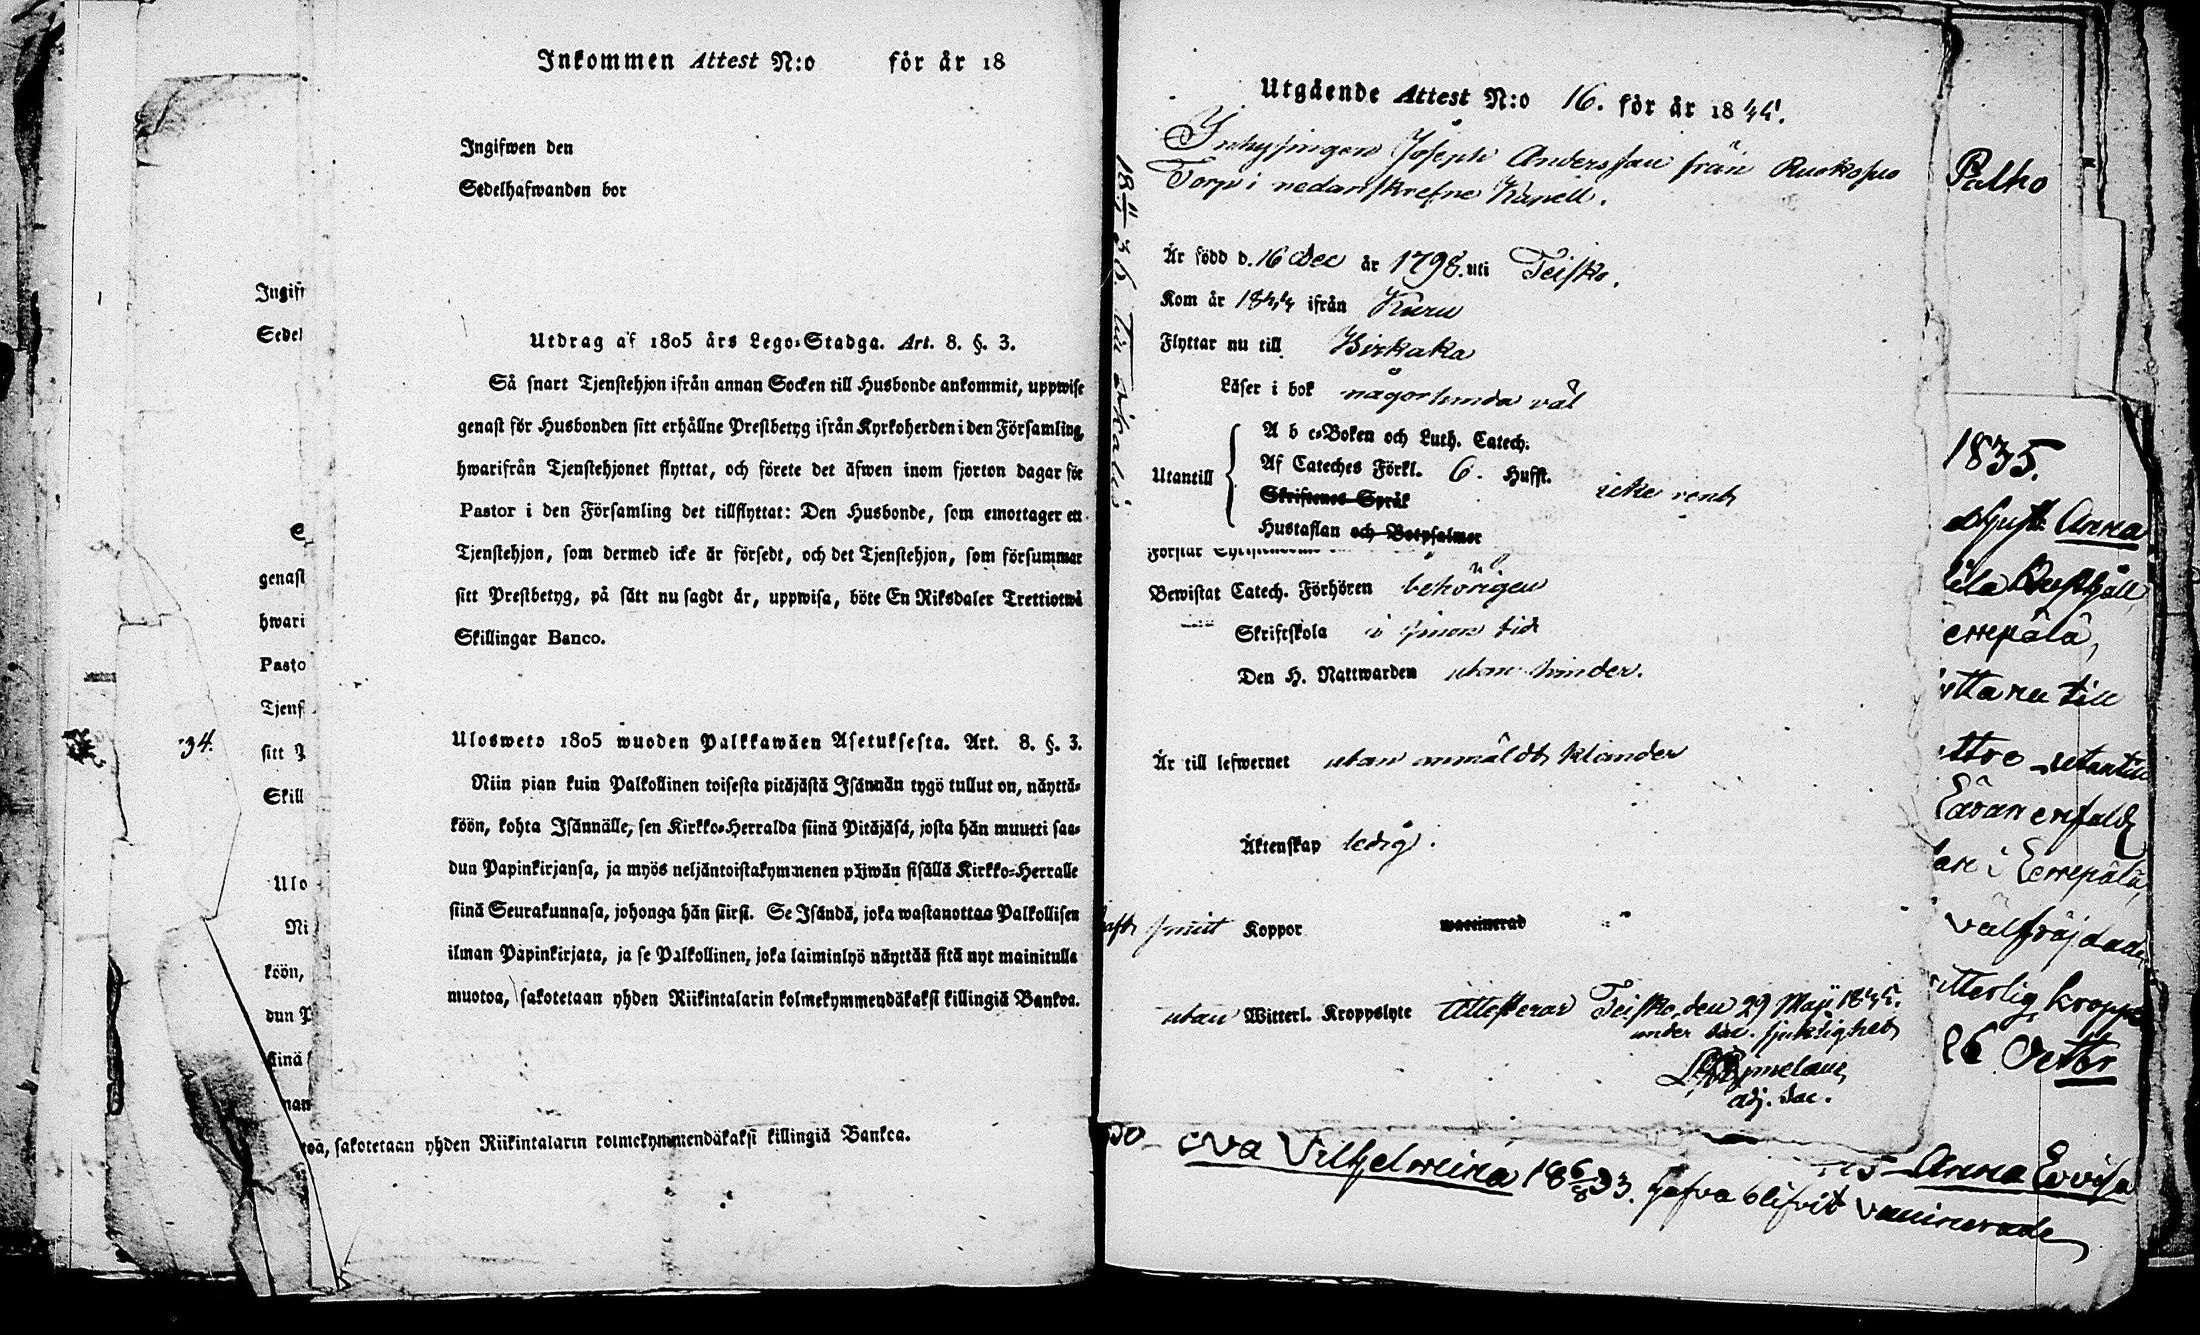 Inkommen Attest N:o för år 18
Ingifwen den
Sedelhafwanden bor
Utdrag af 1805 års Lego-Stadga. Art. 8. §. 3.
Så snart Tjenstehjon ifrån annan Socken till Husbonde ankommit, uppwise
genast för Husbonden sitt erhållne Prestbetyg ifrån Kyrkoherden i den Församling,
hwarifrån Tjenstehjonet flyttat, och förete det äfwen inom fjorton dagar för
Pastor i den Församling det tillflyttat: Den Husbonde, som emottager ett
Tjenstehjon, som dermed icke är försedt, och det Tjenstehjon, som försummar
sitt Prestbetyg, på sätt nu sagdt är, uppwisa, böte En Riksdaler Trettiotwå
Skillingar Banco.
Ulosweto 1805 wuoden Palkkawäen Asetuksesta. Art. 8. §. 3.
Niin pian kuin Palkollinen toisesta pitäjästä Isännän tygö tullut on, näyttä-
köön, kohta Isännälle, sen Kirkko-Herralda siinä Pitäjäsä, josta hän muutti saa-
dun Papinkirjansa, ja myös neljäntoistakymmenen päiwän sisällä Kirkko-Herralle
siinä Seurakunnasa, johonga hän siirsi. Se Isändä, joka wastanottaa Palkollisen
ilman Papinkirjata, ja se Palkollinen, joka laiminlyö näyttää sitä nyt mainitulla
muotoa, sakotetaan yhden Riikintalarin kolmekymmendäkaksi killingiä Bankoa.
sakotetaan yhden Riikintalarin kolmekymmendäkaksi killingiä Bankca.
Ingift
Sedel
genast
hwari
Pasto
Tjens
sitt P
Skill
Ulo
Ni
köön,
dun P
siinä
34.
Utgående Attest N:o 16. för år 1844.
Inhysingen Joseph Andersson från Ruokosuo
Torp i nedanskrefne Kapell.
Är född d. 16 Dec år 1798. uti Teisko.
Kom år 1844 ifrån Kuru
Flyttar nu till Birkala
Läser i bok någorlunda väl
A b c-Boken och Luth. Catech.
Utantill Af Cateches Förkl. 6. Hufst. icke rent
Skriftenes Språk
Hustaflan och Botpsalmer
Bewistat Catech. Förhören behörigen
Skriftskola i sinom tid
Den H. Nattwarden utan hinder.
Är till lefwernet utan anmäldt klander
Äktenskap ledig.
haft smitt Koppor waccinerad
utan Witterl. Kroppslyte Attesterar Teisko, den 29 Maji 1844.
under sac. sjuklighet
adj. sac.
Palho
1835.
Anna
errepälä,
tta nu till
ttre utantill
Läran enfaldt
are i Eerrepälä,
välfräjdade,
itterlig kropps
26 Octbr
Eva Vilhelmina 18 6/8 33. hafva blifvit vaccinerade
Anna Lovisa